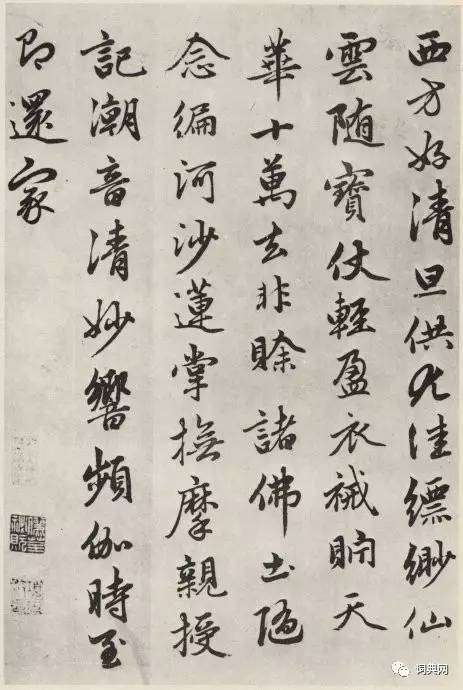 西方好清旦供尤佳縹緲仙
雲随寶仗輕盈衣祴貯天
華十萬去非賒諸佛土随
念徧河沙蓮掌撫摩親授
記潮音清妙響頻伽時至
即還家
词典网